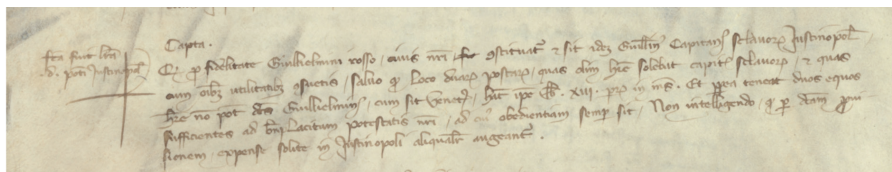 Capta.
fca fuit lra
d. pti Justinopol
Cum pro fidelitate Guillielmini rosso, civis nri constituatr et sit idem Guillmus Capitan sclavor Justinopol
cum oibus utilitatibus consuetis, salvo quod loco duar postar, quas olim hre solebat capit sclavor, et quas
hre no pot Guillielmin, cum sit Venet, heat ipe lib. XIII. pvor in mse. Et ppea teneat duos equos
sufficientes ad bnplacitum potestatis nri, ad cui obedientiam semp sit, Non intelligendo, quod per dcam provi
sionem, expense solite in Justinopoli aliqualr augeantr.